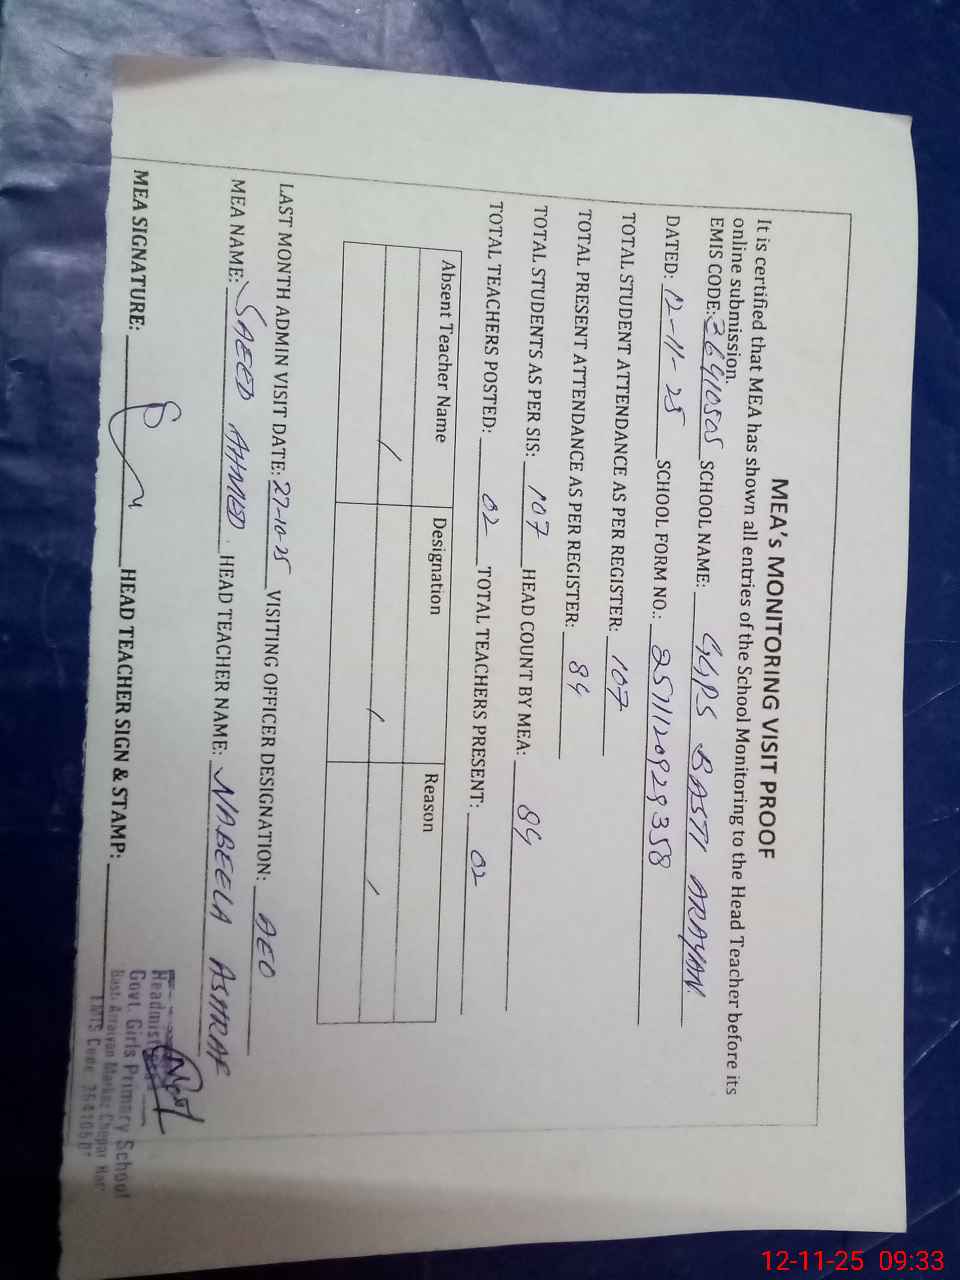 MEA's MONITORING VISIT PROOF
It is certified that MEA has shown all entries of the School Monitoring to the Head Teacher before its
online submission.
EMIS CODE: 36410505 SCHOOL NAME: GGPS BASTI ARAYAN
DATED: 12-11-25 SCHOOL FORM NO.: 2511120929358
TOTAL STUDENT ATTENDANCE AS PER REGISTER: 107
TOTAL PRESENT ATTENDANCE AS PER REGISTER: 84
TOTAL STUDENTS AS PER SIS: 107 HEAD COUNT BY MEA: 84
TOTAL TEACHERS POSTED: 02 TOTAL TEACHERS PRESENT: 02
Absent Teacher Name Designation Reason
/ / /
LAST MONTH ADMIN VISIT DATE: 27-10-25 VISITING OFFICER DESIGNATION: AEO
MEA NAME: SAEED AHMED HEAD TEACHER NAME: NABEELA ASHRAF
MEA SIGNATURE: HEAD TEACHER SIGN & STAMP:
Headmistress
Govt. Girls Primary School
Basti Arraiyan Markaz
Code
12-11-25 09:33